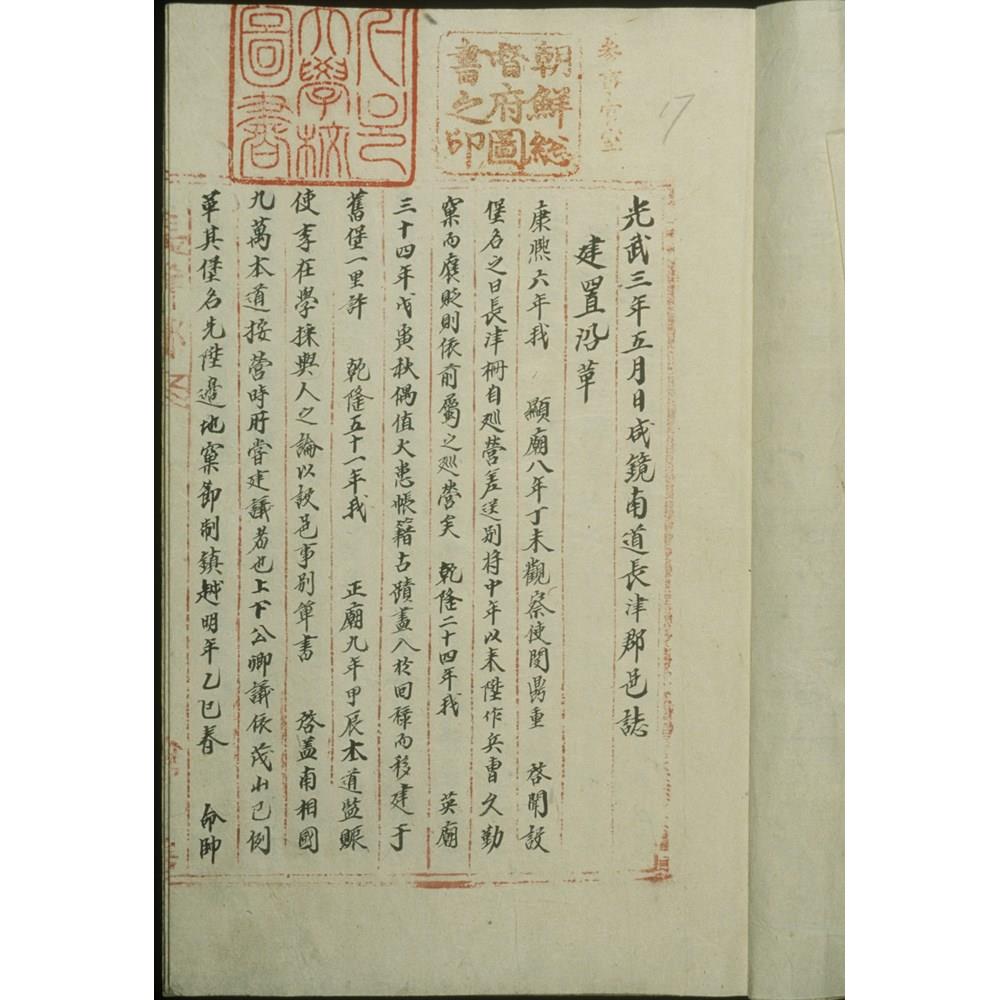 光武三年五月日咸鏡南道長津郡邑誌
建置沿革
康熙六年我 顯廟八年丁未觀察使閔鼎重 啓開設
堡名之曰長津柵自巡營差送別將中年以來陞作兵曹久勤
窠而褒貶則依前屬之巡營矣 乾隆二十四年我 英廟
三十四年戊寅秋偶值火患帳籍古蹟盡入於回祿而移建于
舊堡一里許 乾隆五十一年我 正廟九年甲辰本道監賑
使李在學採輿人之論以設邑事別單書 啓盖南相國
九萬本道按營時所嘗建議者也上下公卿議依茂山已例
革其堡名先陞邊地窠節制鎮越明年乙巳春 命帥
朝鮮總
督府圖
書之印
大學校
圖書
參書官室
17